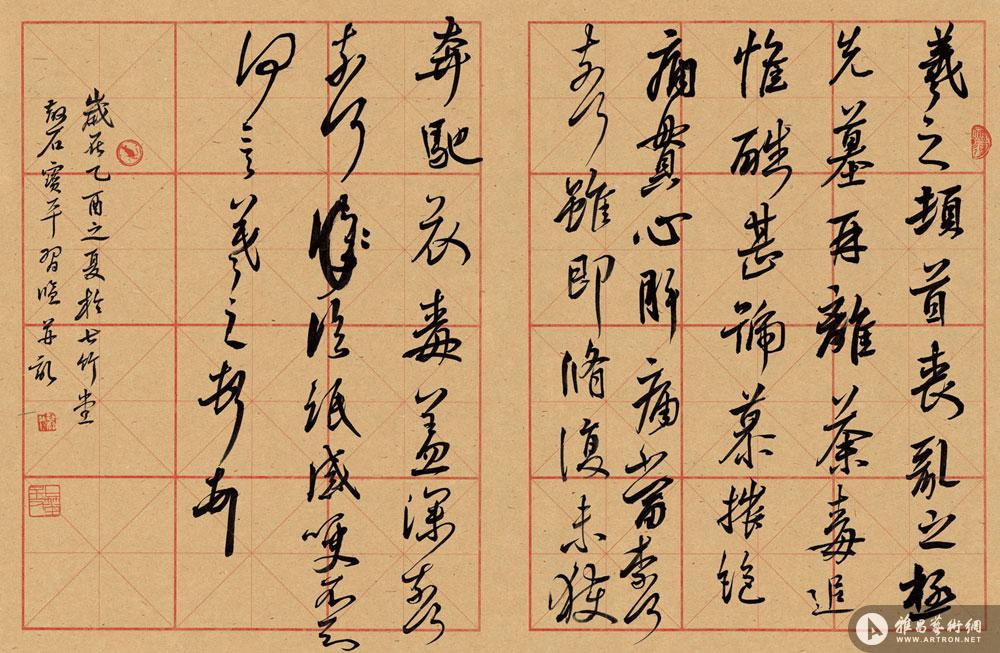 羲之頓首喪亂之極
先墓再離荼毒追
惟酷甚號慕摧絕
痛貫心肝痛當柰何
柰何雖即脩復未獲
奔馳哀毒益深柰何
柰何臨紙感哽不知
何言羲之頓首
歲在乙酉之夏於七竹堂
石寶平習臨并記
雅昌藝術網
WWW.ARTRON.NET